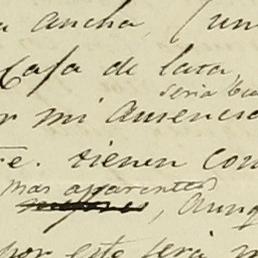 a ancha, (un
Casa de lata,
seria bue
r mi ausencia
te. tienen con
mas aparentes
mejores, aunq
por este seria m